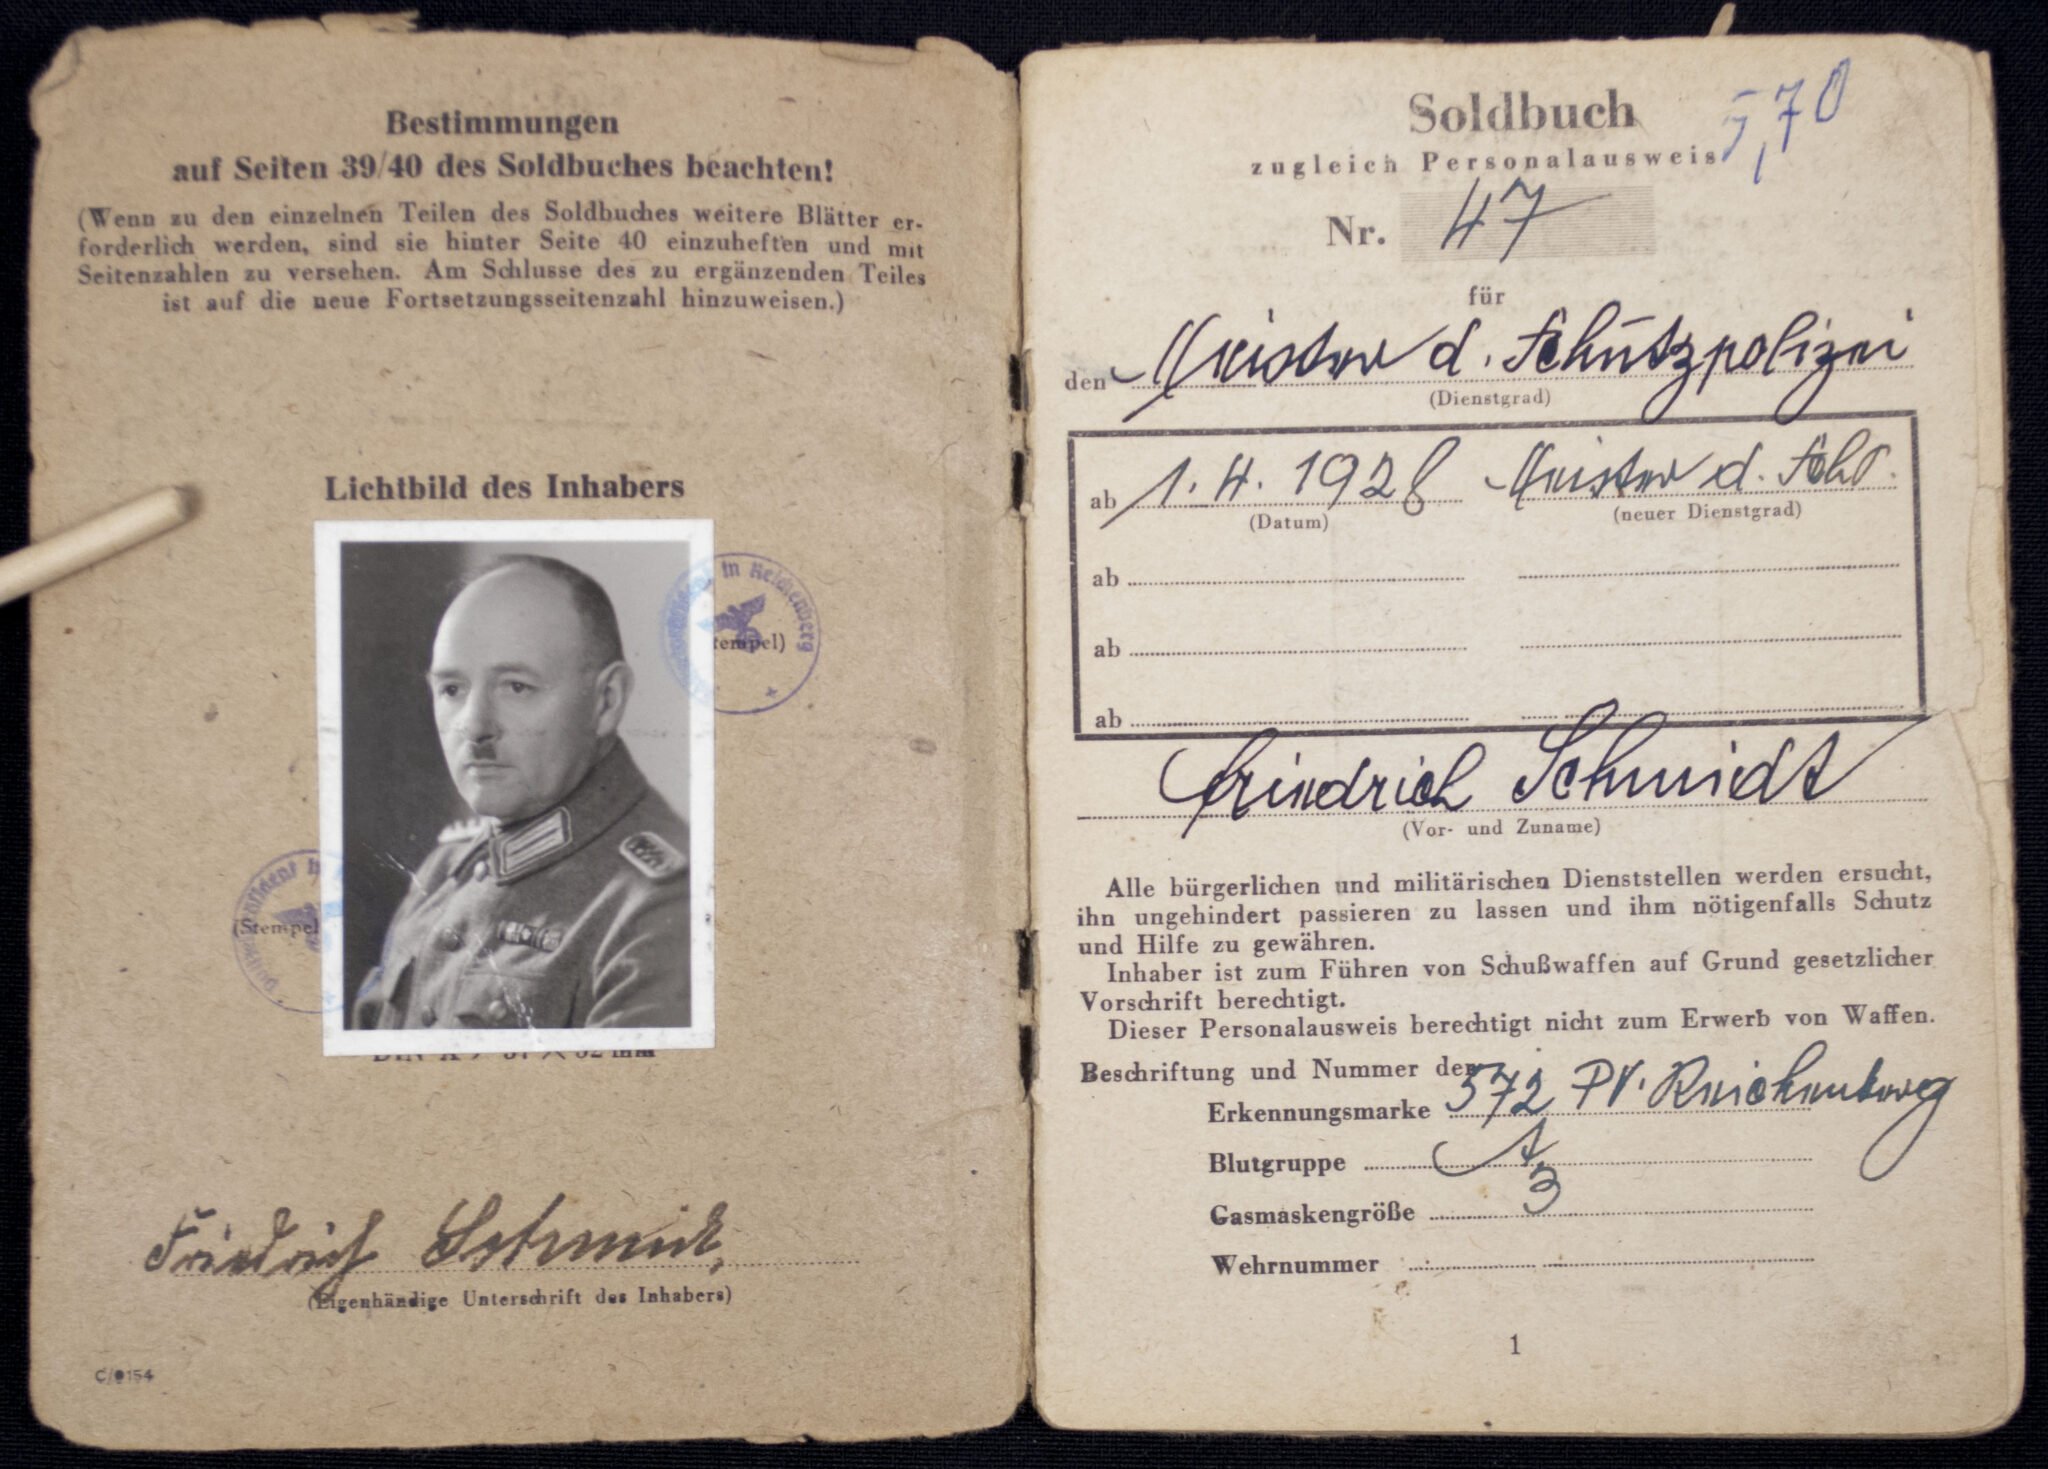 Bestimmungen
auf Seiten 39/40 des Soldbuches beachten!
(Wenn zu den einzelnen Teilen des Soldbuches weitere Blätter er-
forderlich werden, sind sie hinter Seite 40 einzuheften und mit
Seitenzahlen zu versehen. Am Schlusse des zu ergänzenden Teiles
ist auf die neue Fortsetzungsseitenzahl hinzuweisen.)
Lichtbild des Inhabers
in Reichenberg
tempel)
(Stempel
Friedrich Schmidt
(Eigenhändige Unterschrift des Inhabers)
Soldbuch
5,70
zugleich Personalausweis
Nr. 47
für
den Meister d. Schutzpolizei
(Dienstgrad)
ab 1.4.1928 Meister d. SchP.
(Datum) (neuer Dienstgrad)
ab
ab
ab
Friedrich Schmidt
(Vor- und Zuname)
Alle bürgerlichen und militärischen Dienststellen werden ersucht,
ihn ungehindert passieren zu lassen und ihm nötigenfalls Schutz
und Hilfe zu gewähren.
Inhaber ist zum Führen von Schußwaffen auf Grund gesetzlicher
Vorschrift berechtigt.
Dieser Personalausweis berechtigt nicht zum Erwerb von Waffen.
Beschriftung und Nummer der
Erkennungsmarke 572 PV. Reichenberg
Blutgruppe A
Gasmaskengröße 3
Wehrnummer
1